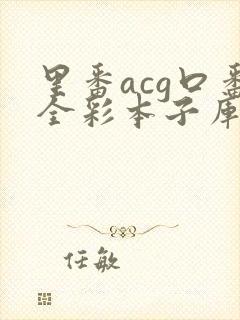 里番acg口番
全彩本子库
任敏